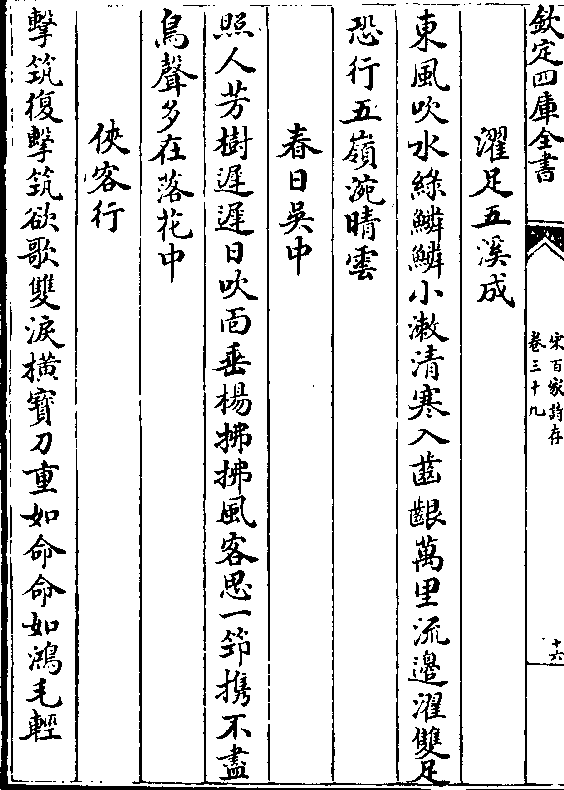 欽定四庫全書
宋百家詩存
卷三十九
十六
濯足五溪成
東風吹水綠鱗鱗小漱清寒入齒齦萬里流邊濯雙足
恐行五嶺涴晴雲
春日吳中
照人芳樹遲遲日吹面垂楊拂拂風客思一筇携不盡
鳥聲多在落花中
俠客行
擊筑復擊筑欲歌雙淚橫寶刀重如命命如鴻毛輕